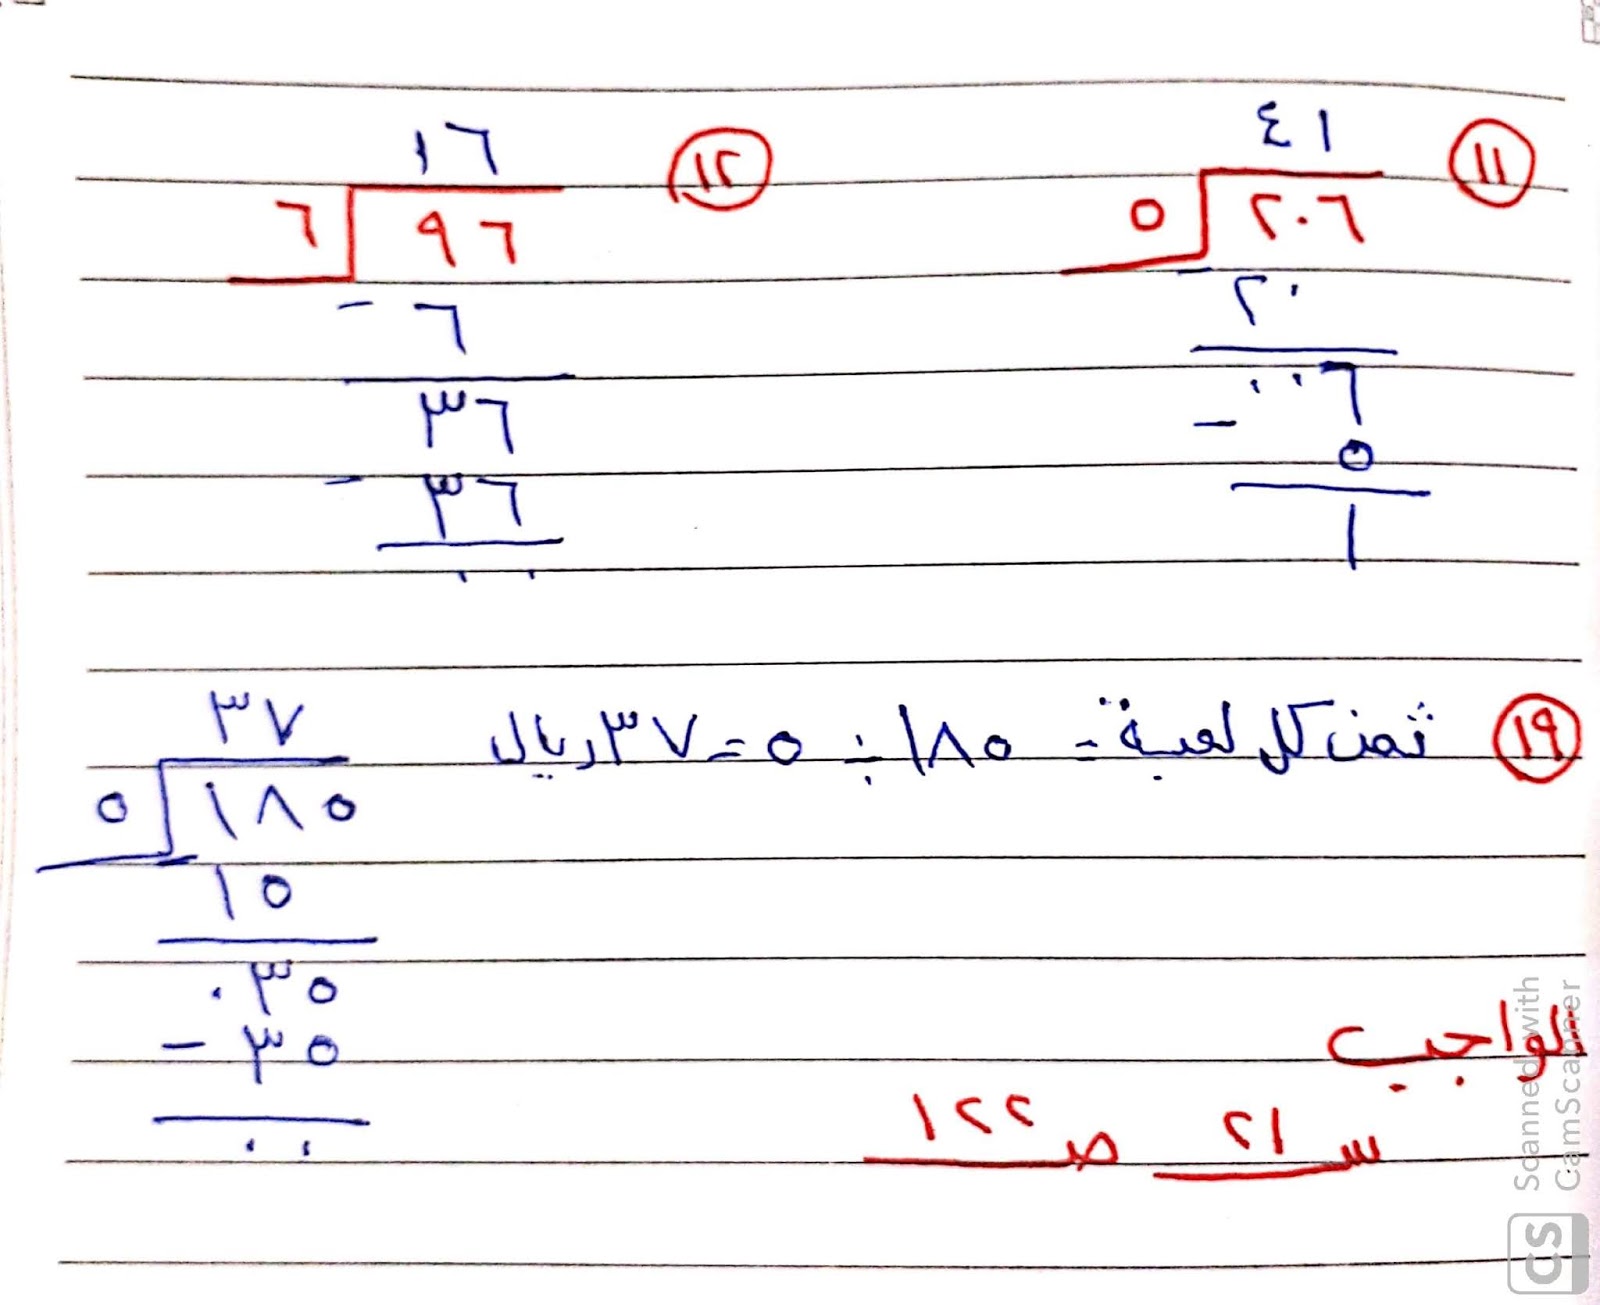 ١١
٤١
٥ ٢٠٦
- ٢٠
٠٠٦
- ٥
١
١٢
١٦
٦ ٩٦
- ٦
٣٦
- ٣٦
٠٠
١٩ ثمن كل لعبة = ١٨٥ ÷ ٥ = ٣٧ ريال
٣٧
٥ ١٨٥
- ١٥
٠٣٥
- ٣٥
٠٠
الواجب
س ٢١ ص ١٢٢
Scanned with
CamScanner
CS